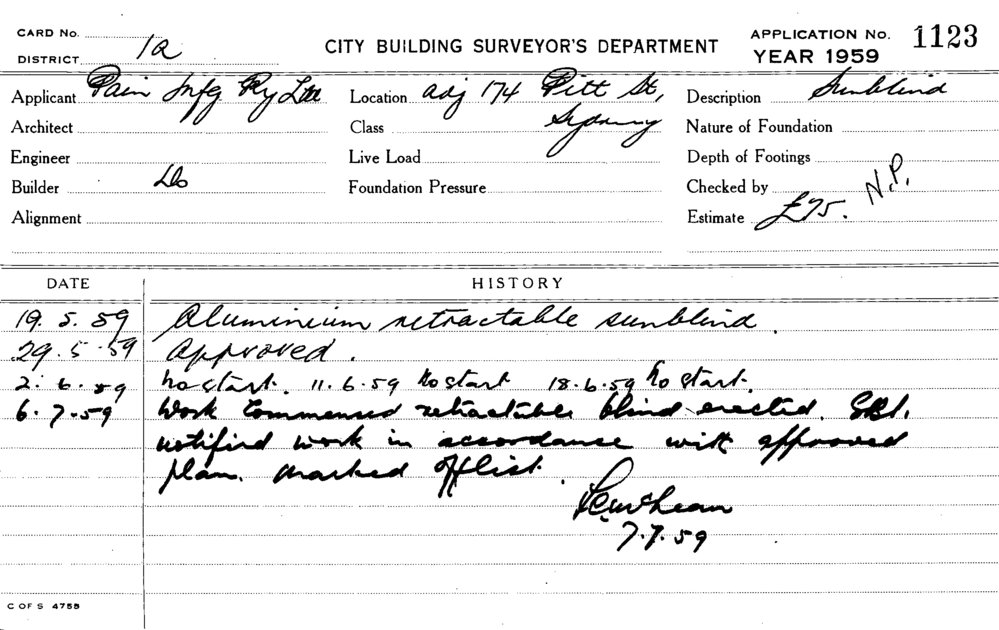 CARD No.
DISTRICT 1a
CITY BUILDING SURVEYOR'S DEPARTMENT
APPLICATION No. 1123
YEAR 1959
Applicant Pain Mfg Pty Ltd Location adj 174 Pitt St, Description Sunblind
Architect Class Sydney Nature of Foundation
Engineer Live Load Depth of Footings
Builder Do Foundation Pressure Checked by N.P.
Alignment Estimate £75.
DATE HISTORY
19.5.59 Aluminium retractable sunblind.
29.5.59 Approved.
2.6.59 No start. 11.6.59 No start 18.6.59 No start.
6.7.59 Work Commenced retractable blind erected.
notified work in accordance with approved
plan. Marked off list.
7.7.59
C OF S 4758